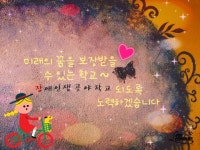 미래의 꿈을 보장받을
수 있는 학교~
장애인생공야학교 되도록
노력하겠습니다